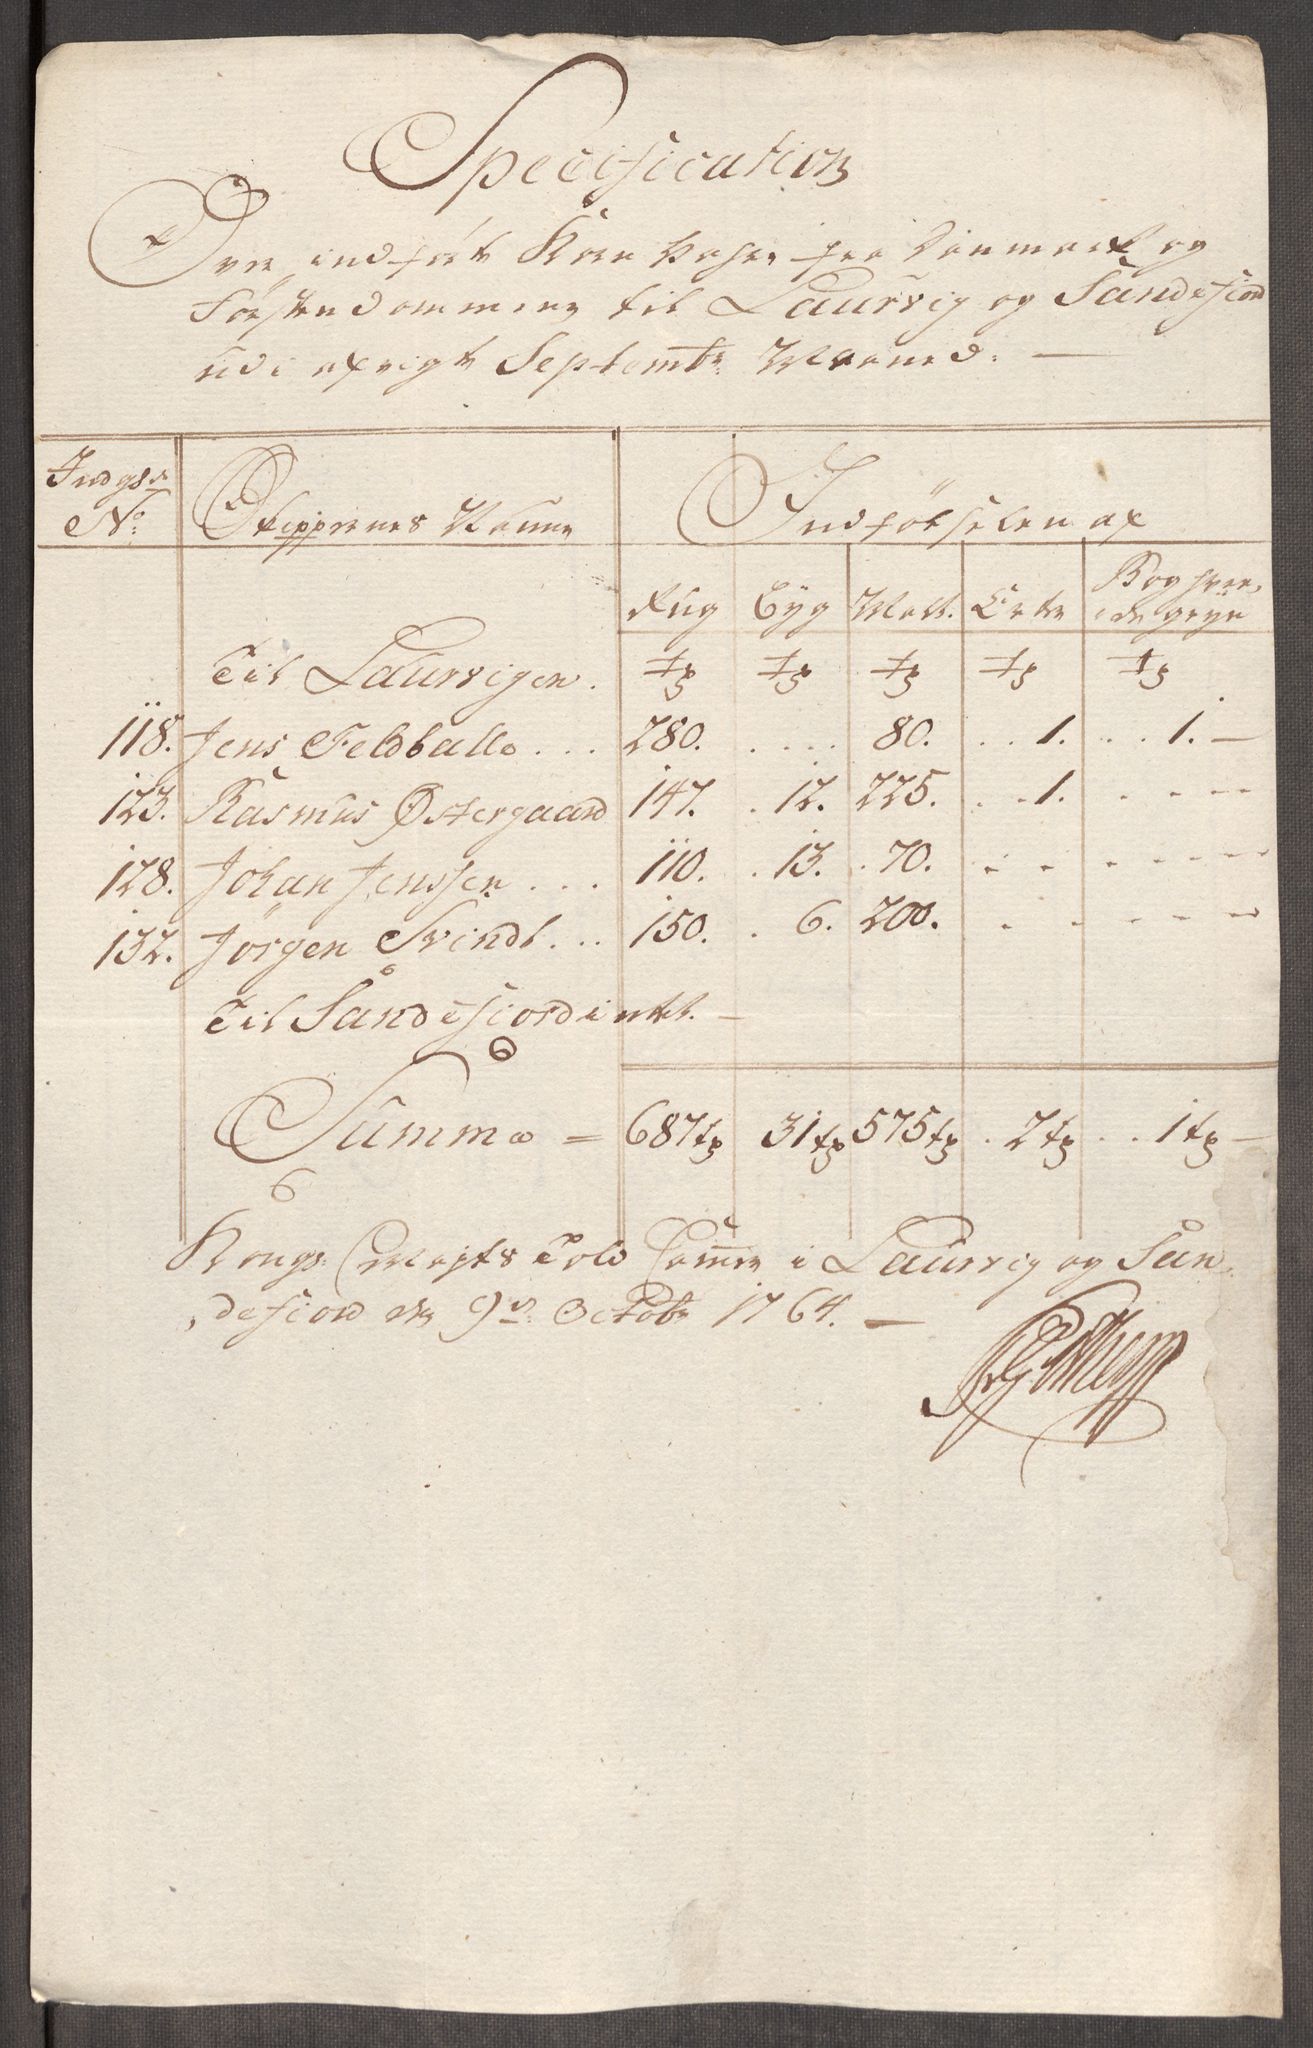 Specification
Over indført Korn Vahre fra Danmark og
Førstendommene til Laurvig og Sandefiord
udi afvigte Septembr Maaned. —
Indgs
No: Skippernes Nafne Indførselen af
Rug Byg Malt. Erter Boghvee,
de gryn
Til Laurvigen. tr tr tr tr tr
118. Jens Feldballe . . . 280. . . . . 80. . . 1. . . 1. —
123. Rasmus Østergaard 147. . 12. 225. . . 1. . - - -
128. Johan Jenssen . . . 110. . 13. . 70. . . . - - - -
132. Jörgen Svindt . . . 150. . 6. 200. . . . - - -
Til Sandefiord intet. —
Summa = 687 tr 31 tr 575 tr . 2 tr . . 1 tr —
Kongs: Majts Told Cammer i Laurvig og San,
,defiord den 9de Octobr 1764. —